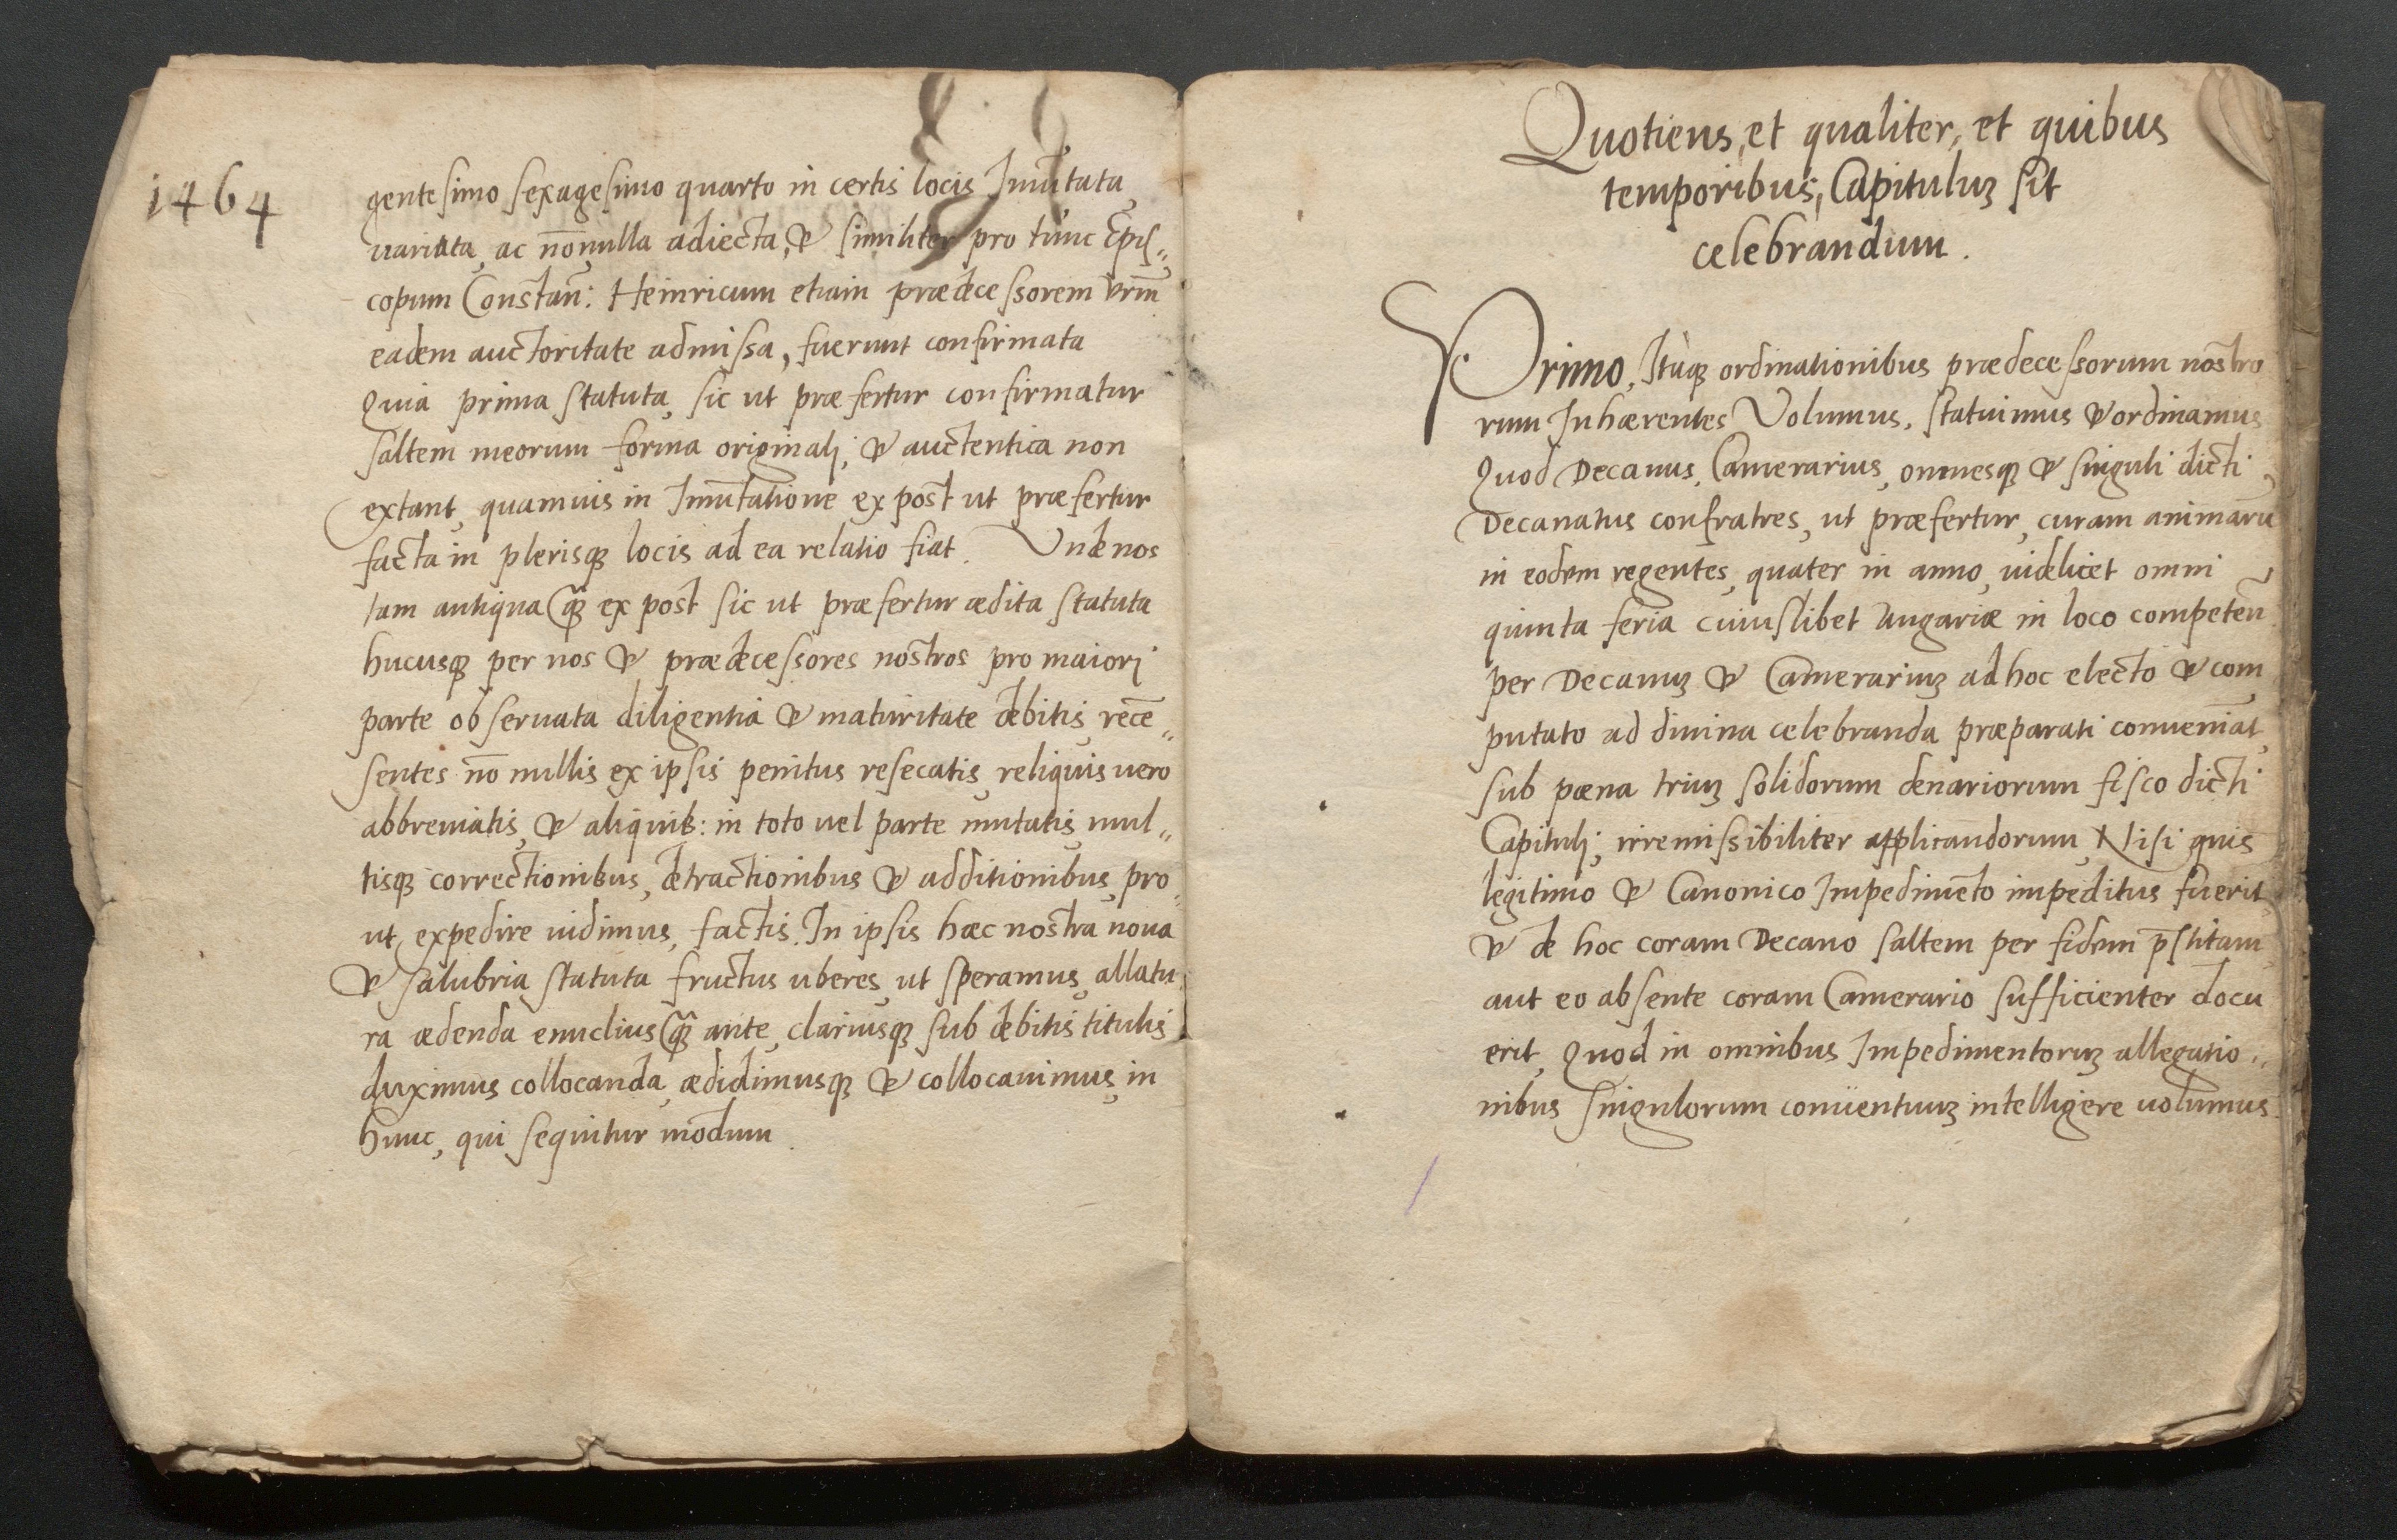 1464
gentesimo sexagesimo quarto in certis locis Imutata,
uariata, ac nōnulla adiecta, & similiter pro tunc Epis„
copum Constan̄: Heinricum etiam prædecessorem vrm̄
eadem auctoritate admissa, fuerunt confirmata
Quia prima statuta, sic ut præfertur confirmatur
saltem meorum forma originalj, & auctentica non
extant, quamuis in Imutatione ex post ut præfertur
facta in plerisq3 locis ad ea relatio fiat. Vnde nos
tam antiqua q̃3 ex post sic ut præfertur ædita statuta
hucusq3 per nos & prædecessores nostros pro maiorj
parte obseruata diligentia & maturitate debitis, recē„
sentes nō nullis ex ipsis penitus resecatis, reliquis uero
abbreuiatis, & aliquib: in toto uel parte mutatis, mul„
tisq3 correctionibus, detractionibus & additionibus, pro„
ut expedire uidimus, factis. In ipsis hæc nostra noua
& salubria statuta fructus uberes, ut speramus, allatu„
ra ædenda enuclius q̃3 ante, clariusq3 sub debitis titulis
duximus collocanda, ædidimusq3 & collocauimus, in
hunc, qui sequitur modum.
Quotiens, et qualiter, et quibus
temporibus, Capitulu3 sit
celebrandum.
Primo, Itaq3 ordinationibus prædecessorum nostro
rum Inhærentes Volumus, statuimus & ordinamus
Quod Decanus, Camerarius, omnesq3 & singuli dicti
Decanatus confratres, ut præfertur, curam animarū
in eodem regentes, quater in anno, uidelicet omni
quinta feria cuiuslibet Angariæ in loco competen̄
per Decanu3 & Camerariu3 ad hoc electo & com
putato ad diuina celebranda præparati conueniāt,
sub pæna triu3 solidorum denariorum fisco dicti
Capitulj, irremissibiliter applicandorum, Nisi quis
legitimo & Canonico Impedimēto impeditus fuerit
& de hoc coram Decano saltem per fidem p̄stitam
aut eo absente coram Camerario sufficienter docu
erit, Quod in omnibus Impedimentoru3 allegatio„
nibus singulorum conuentuu3 intelligere uolumus.